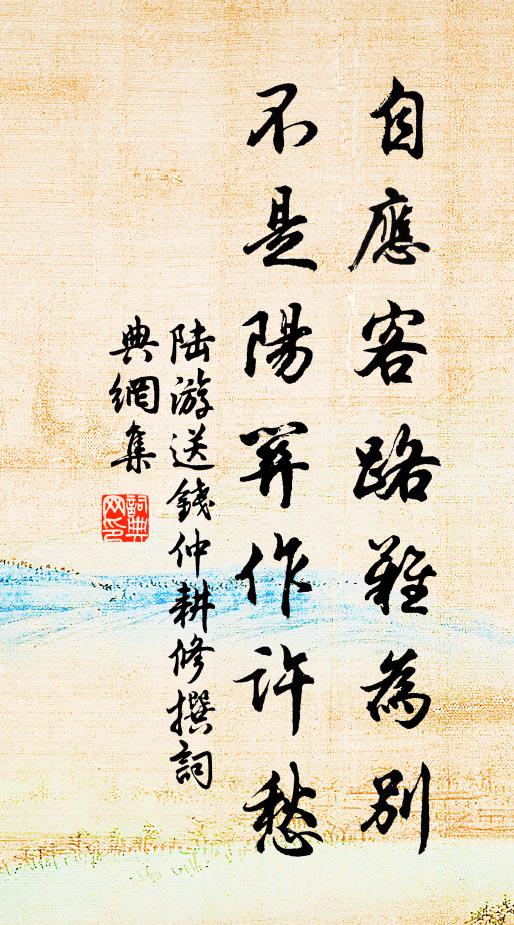 自應客路難為別
不是陽關作許愁
陸游送錢仲耕修撰詞
典網集
詞典
网印